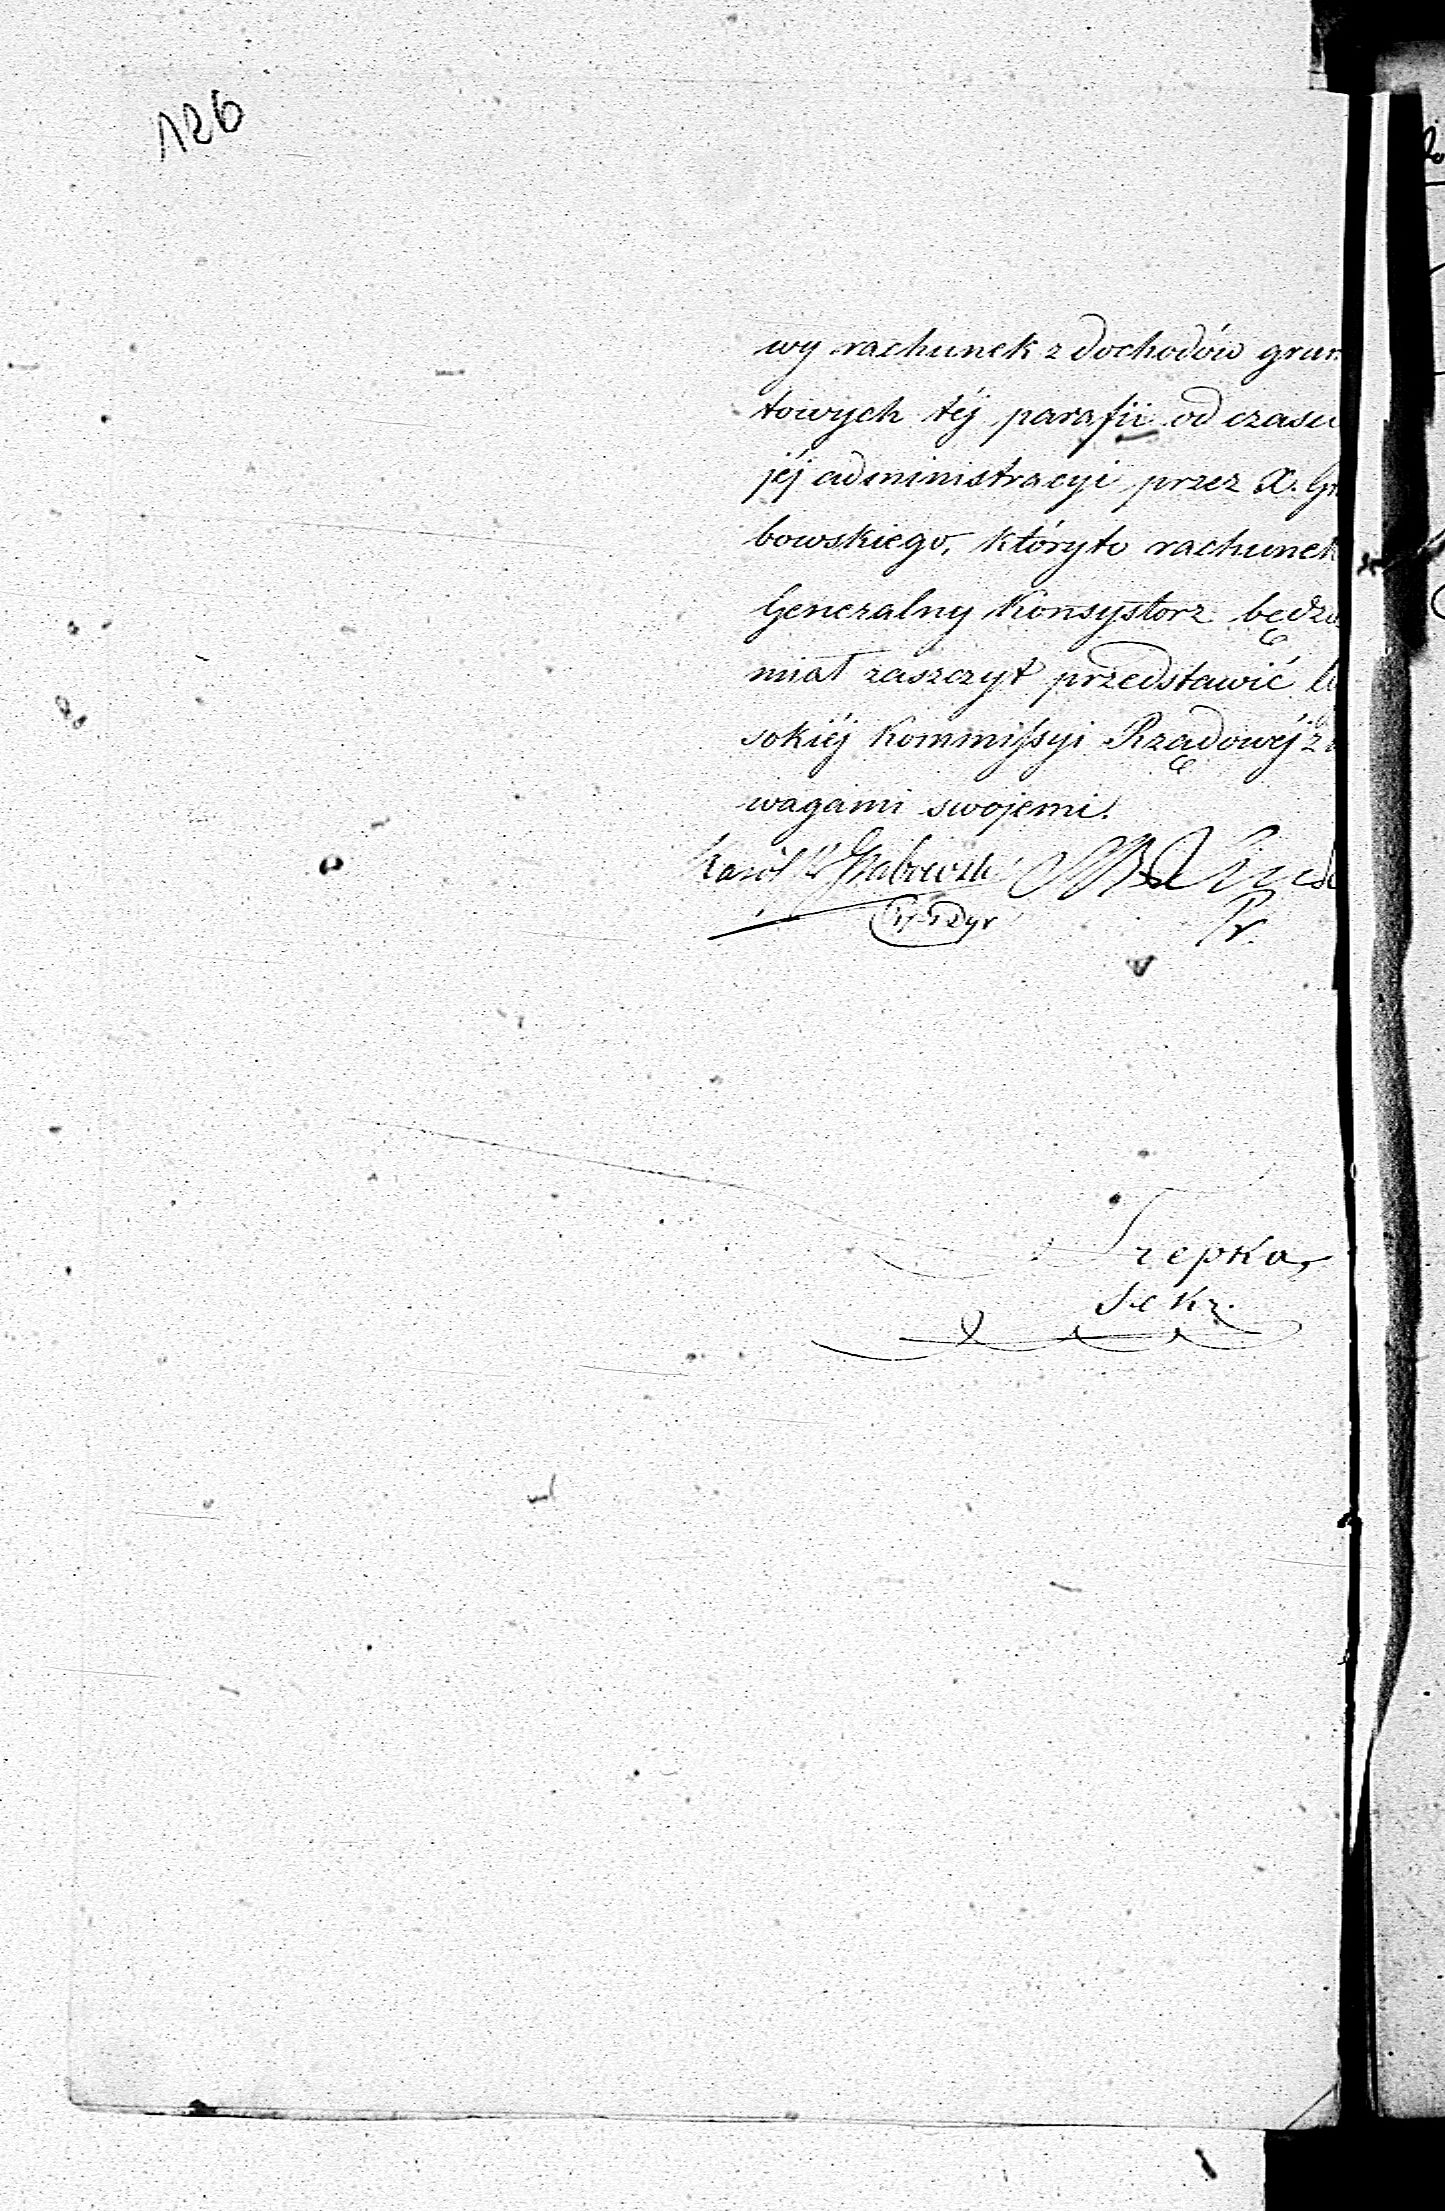 126
wy rachunek z dochodów grun
towych téj parafii od czasu
jéj administracyi przez X. Gr
bowskiego, któryto rachunek
Generalny Konsystorz będzi
miał zaszczyt przedstawić
sokiéj Kommissyi Rządowéj z
wagami swojemi.
Karól Grabowski
Pr.
Trepka,
Sekr.